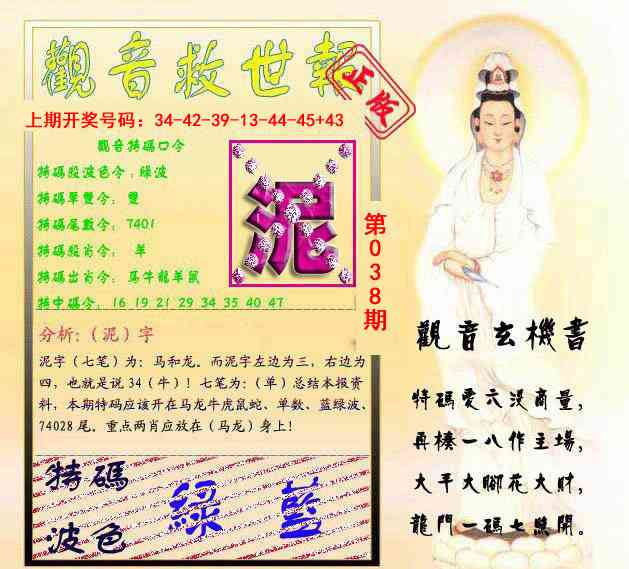 觀音救世報
正版
上期开奖号码：34-42-39-13-44-45+43
觀音特碼口令
特碼股波色令：绿波
特碼單雙令： 雙
特碼尾數令： 7401
特碼股肖令： 羊
特碼出肖令： 馬牛龍羊鼠
特中碼令： 16 19 21 29 34 35 40 47
泥
第038期
分析:（泥）字
泥字（七笔）为：马和龙。而泥字左边为三，右边为
四，也就是说 34（牛）！七笔为：（单）总结本报资
料，本期特码应该开在马龙牛虎鼠蛇、单数、蓝绿波、
74028 尾。重点两肖应放在（马龙）身上！
特碼
波色
綠 藍
觀音玄機書
特碼愛六没商量，
再楱一八作主場，
大平大腳花大財，
龍門一碼七無開。